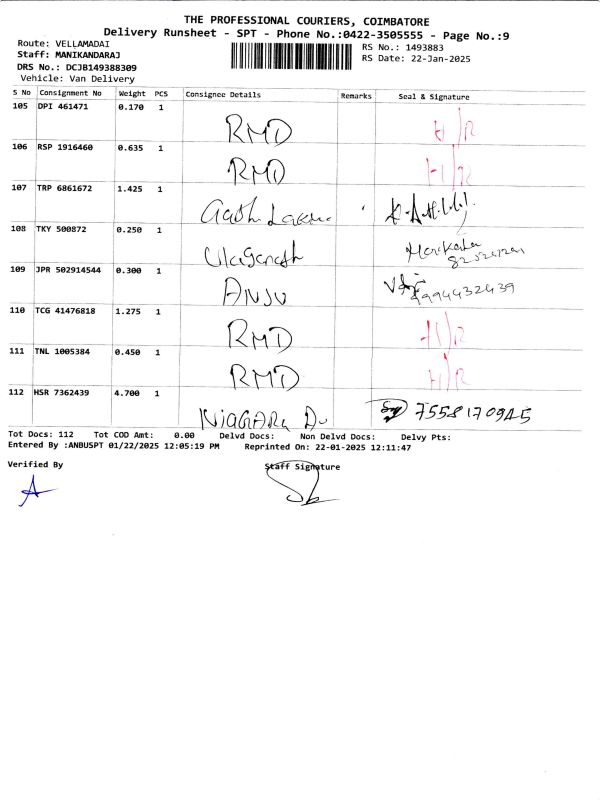 THE PROFESSIONAL COURIERS, COIMBATORE
Delivery Runsheet - SPT - Phone No.:0422-3505555 - Page No.:9
Route: VELLAMADAI
RS No.: 1493883
Staff: MANIKANDARAJ
RS Date: 22-Jan-2025
DRS No.: DCJB149388309
Vehicle: Van Delivery
S No Consignment No Weight PCS Consignee Details Remarks Seal & Signature
105 DPI 461471 0.170 1
RMD H/R
106 RSP 1916460 0.635 1
RMD H/R
107 TRP 6861672 1.425 1
108 TKY 500872 0.250 1
109 JPR 502914544 0.300 1
ANJU 9994432439
110 TCG 41476818 1.275 1
RMD H/R
111 TNL 1005384 0.450 1
RMD H/R
112 HSR 7362439 4.700 1
NIAGARA 7558170945
Tot Docs: 112 Tot COD Amt: 0.00 Delvd Docs: Non Delvd Docs: Delvy Pts:
Entered By :ANBUSPT 01/22/2025 12:05:19 PM Reprinted On: 22-01-2025 12:11:47
Verified By Staff Signature